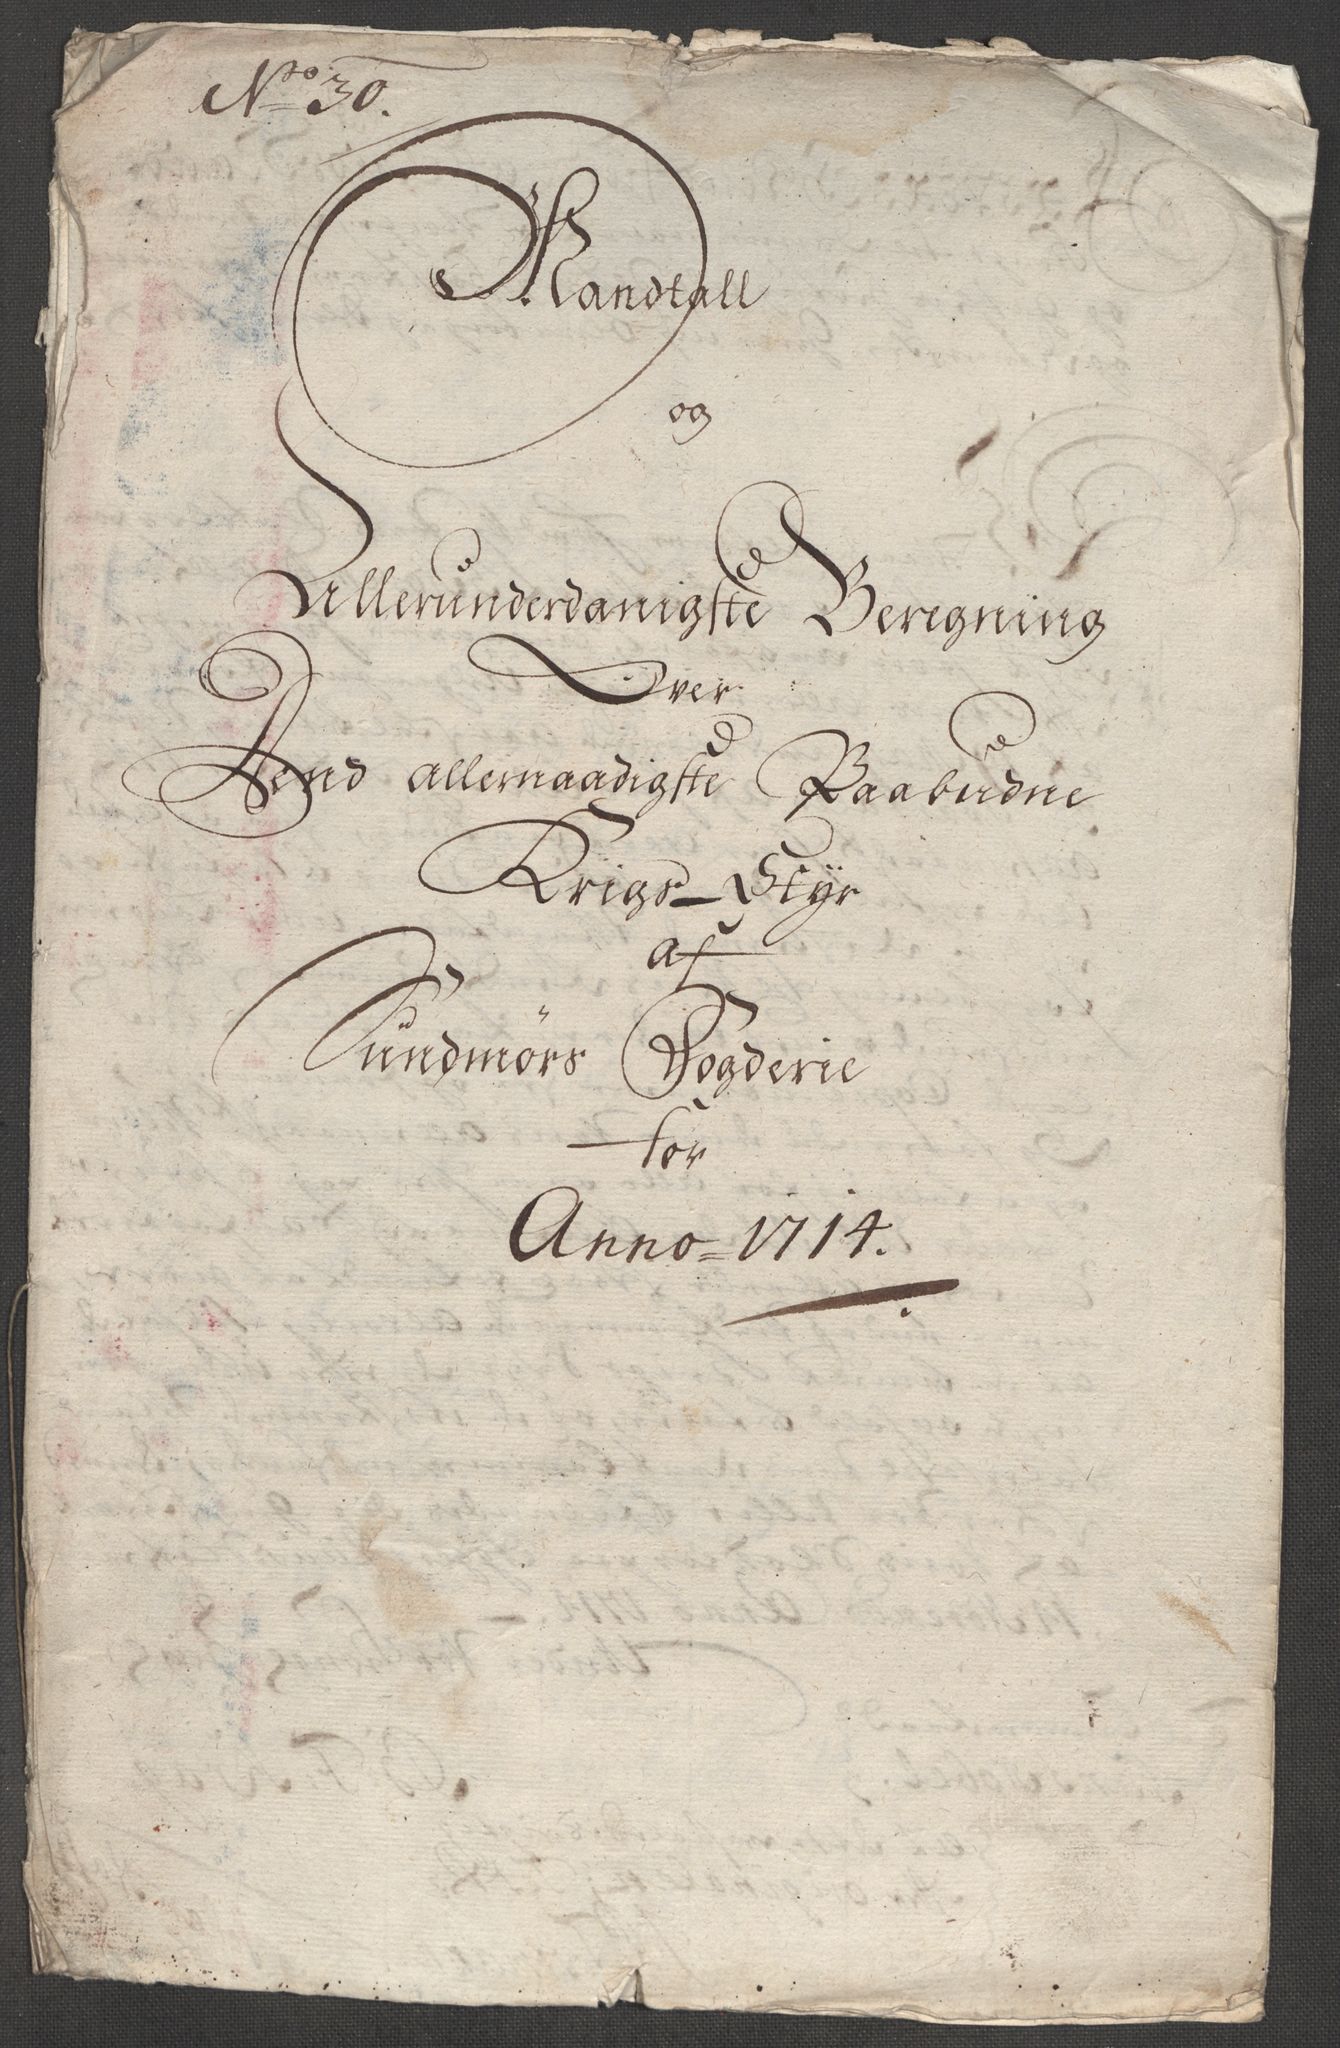 No 30.
Mandtall
og
Allerunderdanigste Beregning
Over
Dend allernaadigste Paabudne
Krigs-Styr
af
Sundmörs Fogderie
for
Anno=1714.